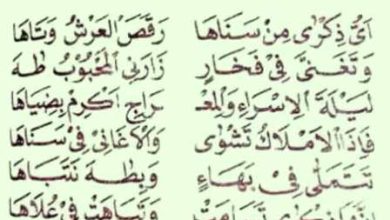 أَيُّ ذِكْرٰى مِنْ سَنَاهَا رَقَصَ الْعَرْشُ وَتَاهَا
وَتَغَنَّى فِى فَخَارٍ زَارَنِى الْمَحْبُوبُ طٰهَ
لَيْلَةَ الْاِسْرَاءِ وَالْمِعْـ ـرَاجِ اَكْرِمْ بِضِيَاهَا
فَإِذَا الْاَمْلَاكُ نَشْوٰى وَالْاَغَانِى فِى سَنَاهَا
تَتَمَلَّى فِى بَهَاءٍ وَبِطٰهَ تَتَبَاهَا
وَتَبَاهَتْ فِى عُلَاهَا